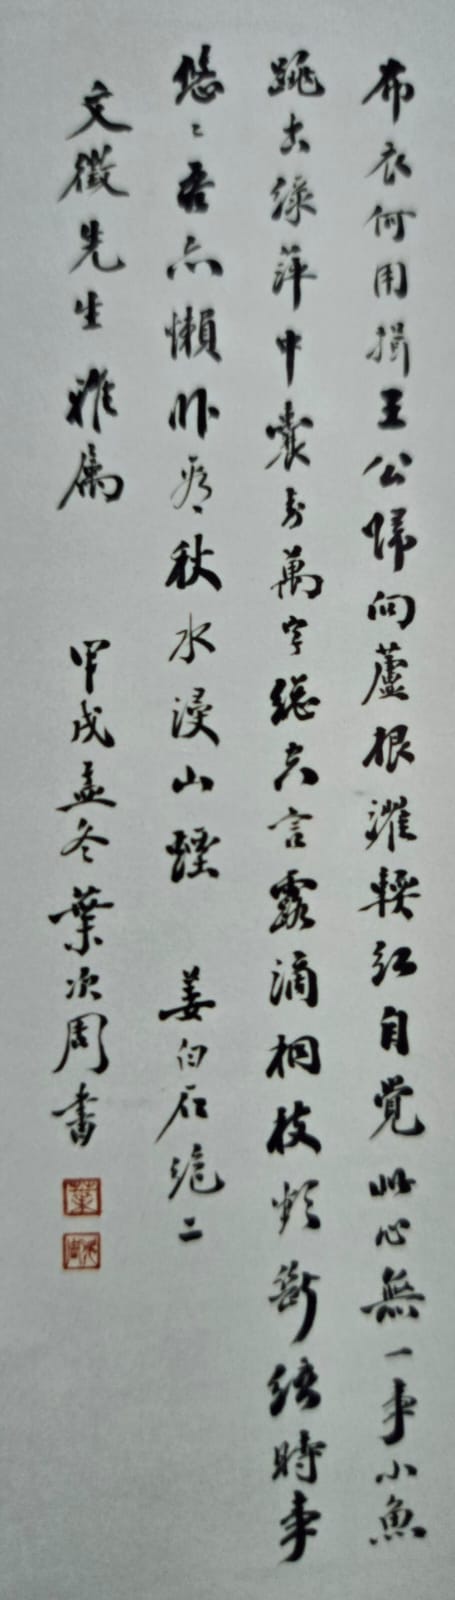 布衣何用揖王公歸向蘆根濯輭紅自覺此心無一事小魚
跳出綠萍中囊封萬字總空言露滴桐枝欲斷絃時事
悠〻吾亦懶臥看秋水浸山煙　姜白石絕二
文徵先生雅屬　甲戌孟冬葉次周書